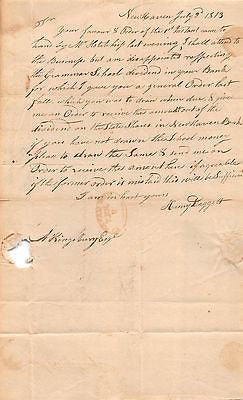 New Haven July 3d 1813
Sir
Your favour & Order of the 1st Instant came to
hand by Mr Hotchkiss last evening I shall attend to
the Business but am disappointed respecting
the Grammar School dividend in your Bank
for which I gave you a general Order last
fall, which you was to draw when due, & give
me an Order to receive the amount out of the
dividend on the State Shares in New Haven Bank
If you have not drawn the School money
please to draw the same & send me an
Order to receive the amount here if agreeable
if the former order is mislaid this will be Sufficient
I am in hast yours
Henry Daggett
A Kingsbury Esqr